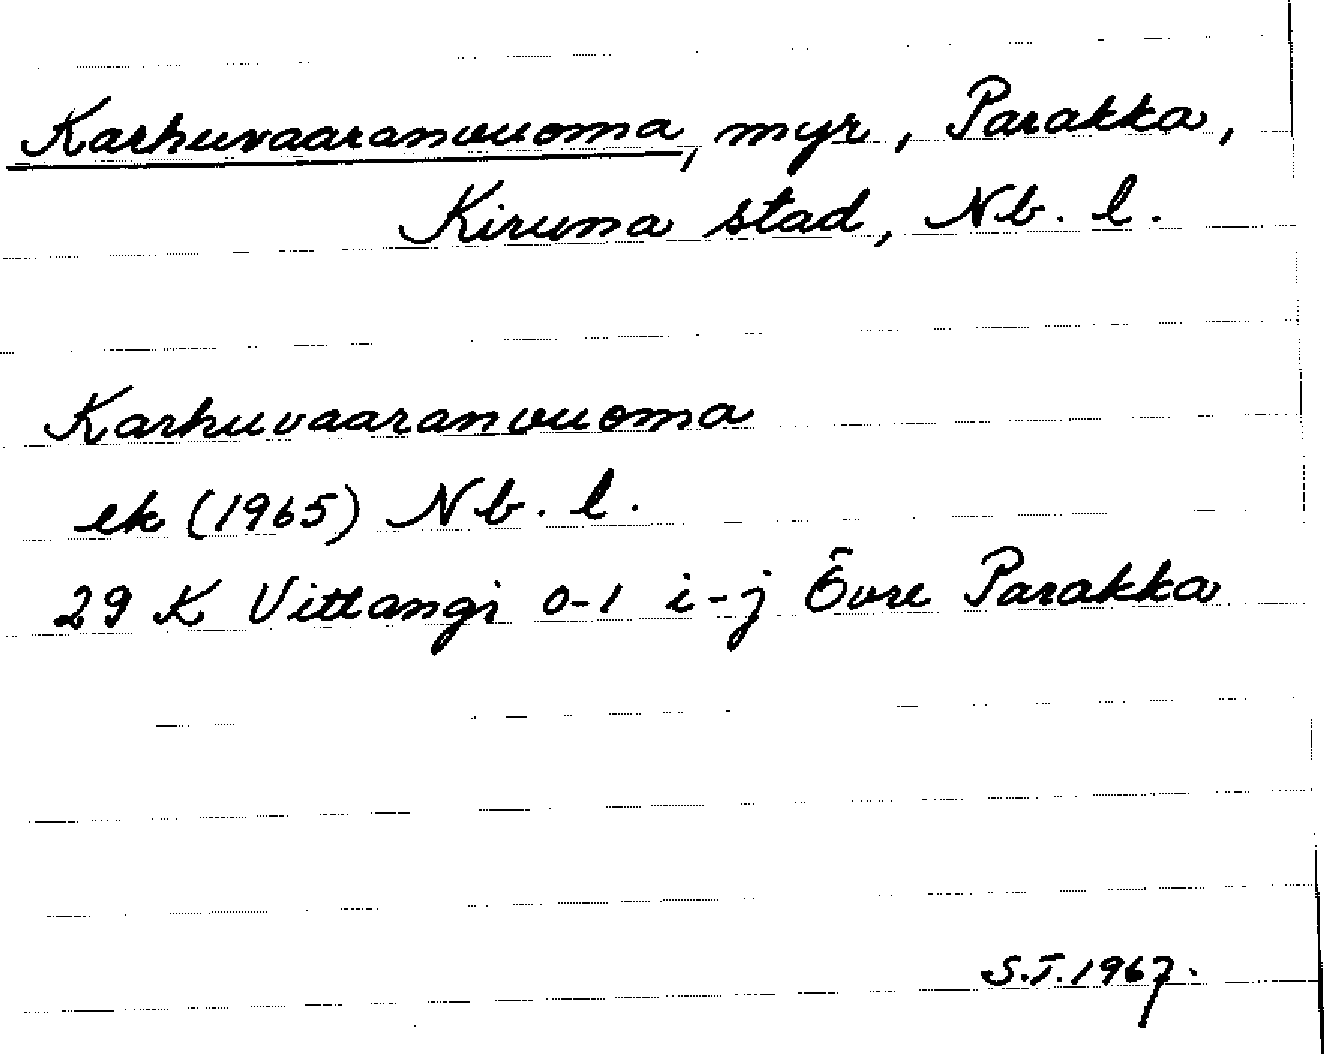 Karhuvaaranvuoma, myr, Parakka,
Kiruna stad, Nb. l.
Karhuvaaranvuoma
ek (1965) Nb. l.
29 K Vittangi 0-1 i-j Övre Parakka
S.T. 1967.